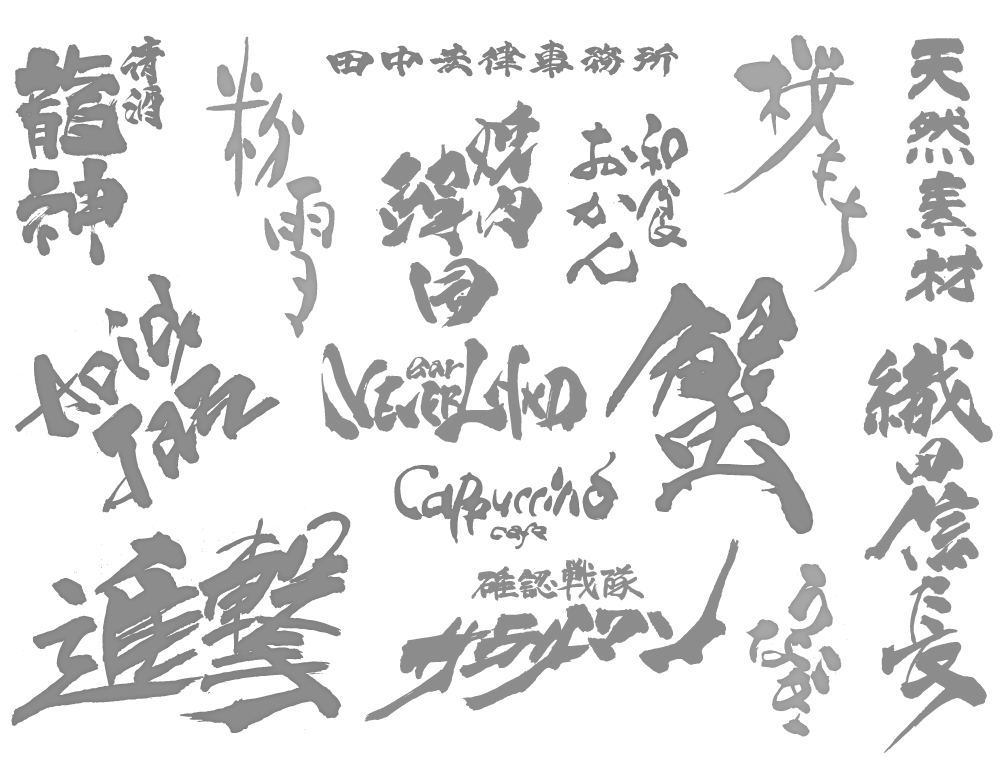 清酒
龍神
粉雪
田中法律事務所
焼肉
韓国
和食
おかん
桜もち
天然素材
Acid
Bar
NEVERLAND
蟹
織田信長
Cappuccino
cafe
進撃
確認戦隊
うなぎ